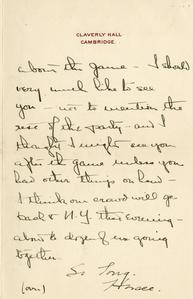 CLAVERLY HALL
CAMBRIDGE.
about the game - I should
very much like to see
you - not to mention the
rest of the party - and I
thought I might see you
after the game unless you
had other things on hand -
I think our crowd will go
back to N.Y. this evening -
about a dozen of us going
together.
So long.
Horace.
(over)